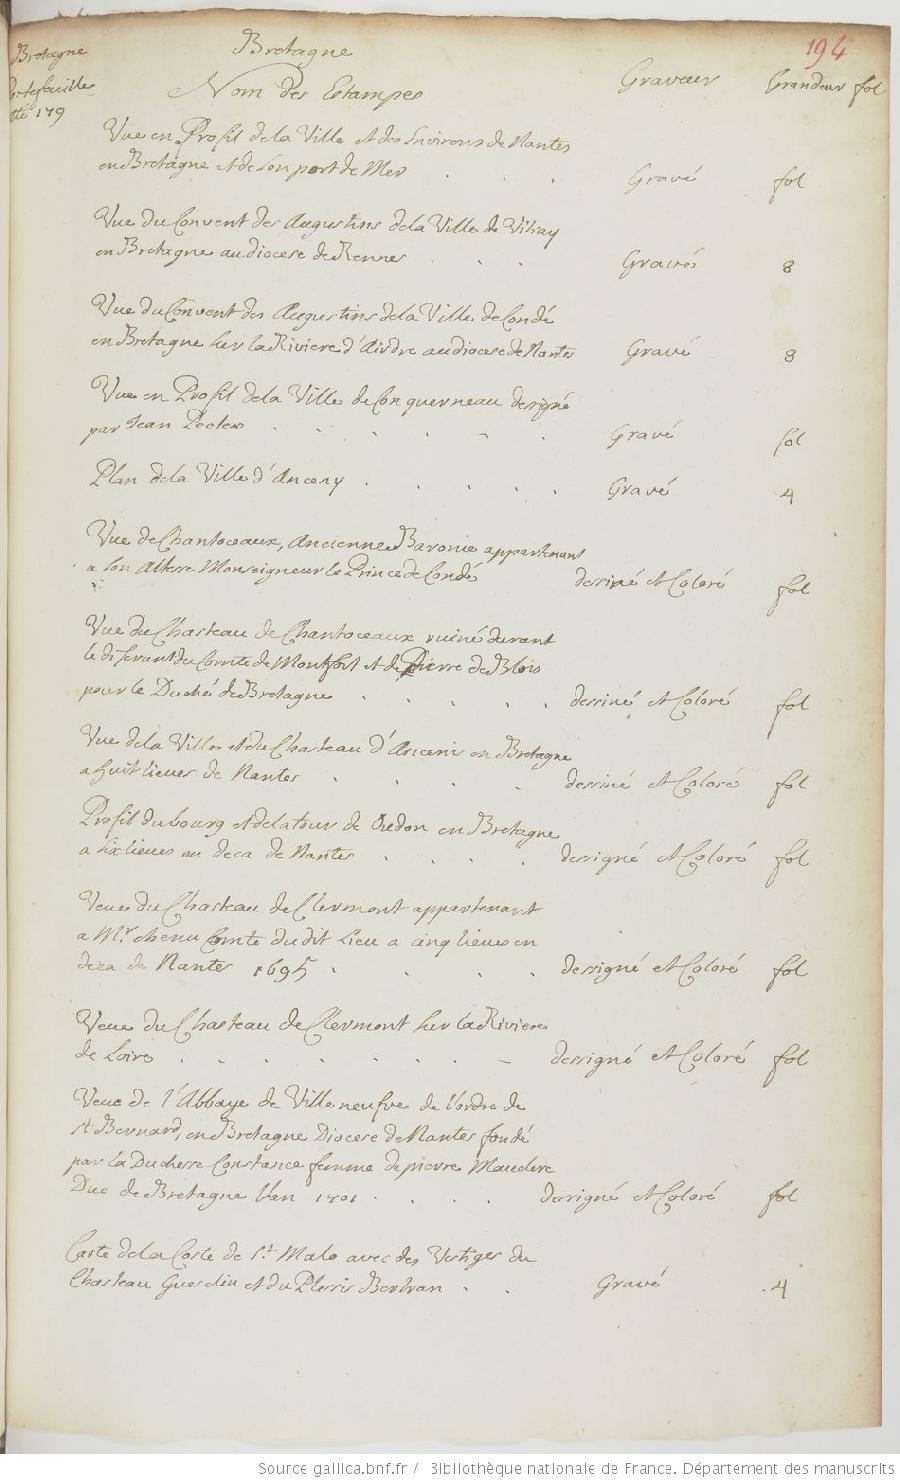 Bretagne
Portefeuille
179
194
Bretagne
Nom des Estampes Graveur Grandeur fol
Vue en Profil de la Ville et des Environs de Nantes
en Bretagne et de son port de Mer . . Gravé fol
Vue du Convent des Augustins de la Ville de Vitray
en Bretagne au diocese de Rennes . . . Gravés 8
Vue du Convent des Augustins de la Ville de Condé
en Bretagne sur la Riviere d'Airdre au diocese de Nantes Gravé 8
Vue en Profil de la Ville de Conquerneau designé
par Jean . . . . . . Gravé fol
Plan de la Ville d'Anceny . . . . . Gravé 4
Vue de Chantoceaux, Ancienne Baronie appartenant
a son Altesse Monseigneur le Prince de Condé dessiné et Coloré fol
Vue du Chasteau de Chantoceaux ruiné durant
le diferant du Comte de Montfort et de Pierre de Blois
pour le Duché de Bretagne . . . . . dessiné et Coloré fol
Vue de la Ville et du Chasteau d'Ancenis en Bretagne
a huit lieues de Nantes . . . . dessiné et Coloré fol
Profil du bourg et de la tour de Oudon en Bretagne
a six lieues au deca de Nantes . . . . dessigné et Coloré fol
Veue du Chasteau de Clermont appartenant
a Mr. chenu Comte du dit Lieu a cinq lieues en
deca de Nantes 1695 . . . . dessigné et Coloré fol
Veue du Chasteau de Clermont sur la Riviere
de Loire . . . . . . . – dessigné et Coloré fol
Veue de l'Abbaye de Villeneufve de l'ordre de
st Bernard, en Bretagne Diocese de Nantes fondé
par la Duchesse Constance femme de pierre Mauclerc
Duc de Bretagne l'an 1201 . . . . dessigné et Coloré fol
Carte de la Coste de St. Malo avec des Vestiges du
Chasteau Guesclin et du Plessis Bertran . . Gravé . 4
Source gallica.bnf.fr / Bibliothèque nationale de France. Département des manuscrits